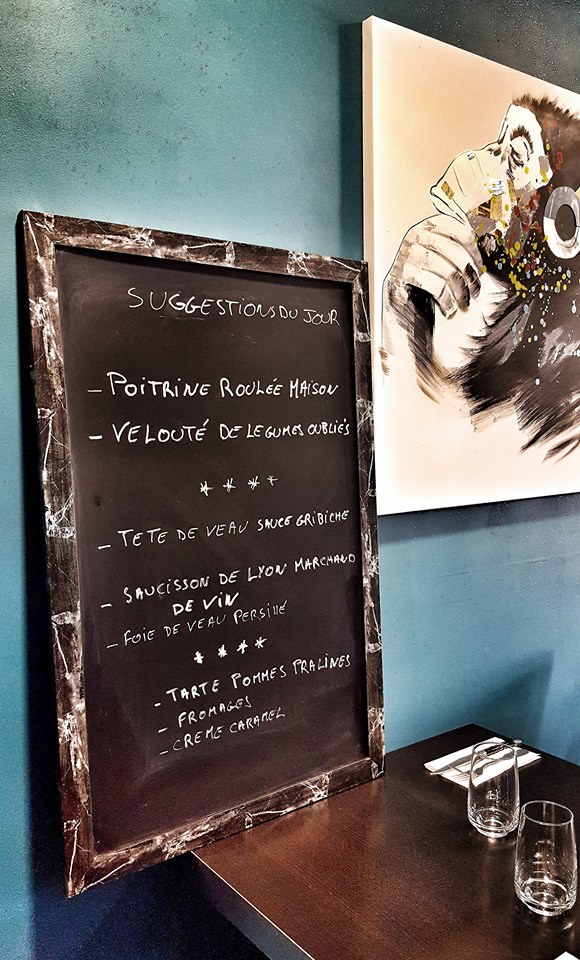 SUGGESTIONS DU JOUR
- POITRINE ROULÉE MAISON
- VELOUTÉ DE LEGUMES OUBLIÉS
* * * *
- TETE DE VEAU SAUCE GRIBICHE
- SAUCISSON DE LYON MARCHAND
DE VIN
- FOIE DE VEAU PERSILLÉ
* * * *
- TARTE POMMES PRALINES
- FROMAGES
- CREME CARAMEL